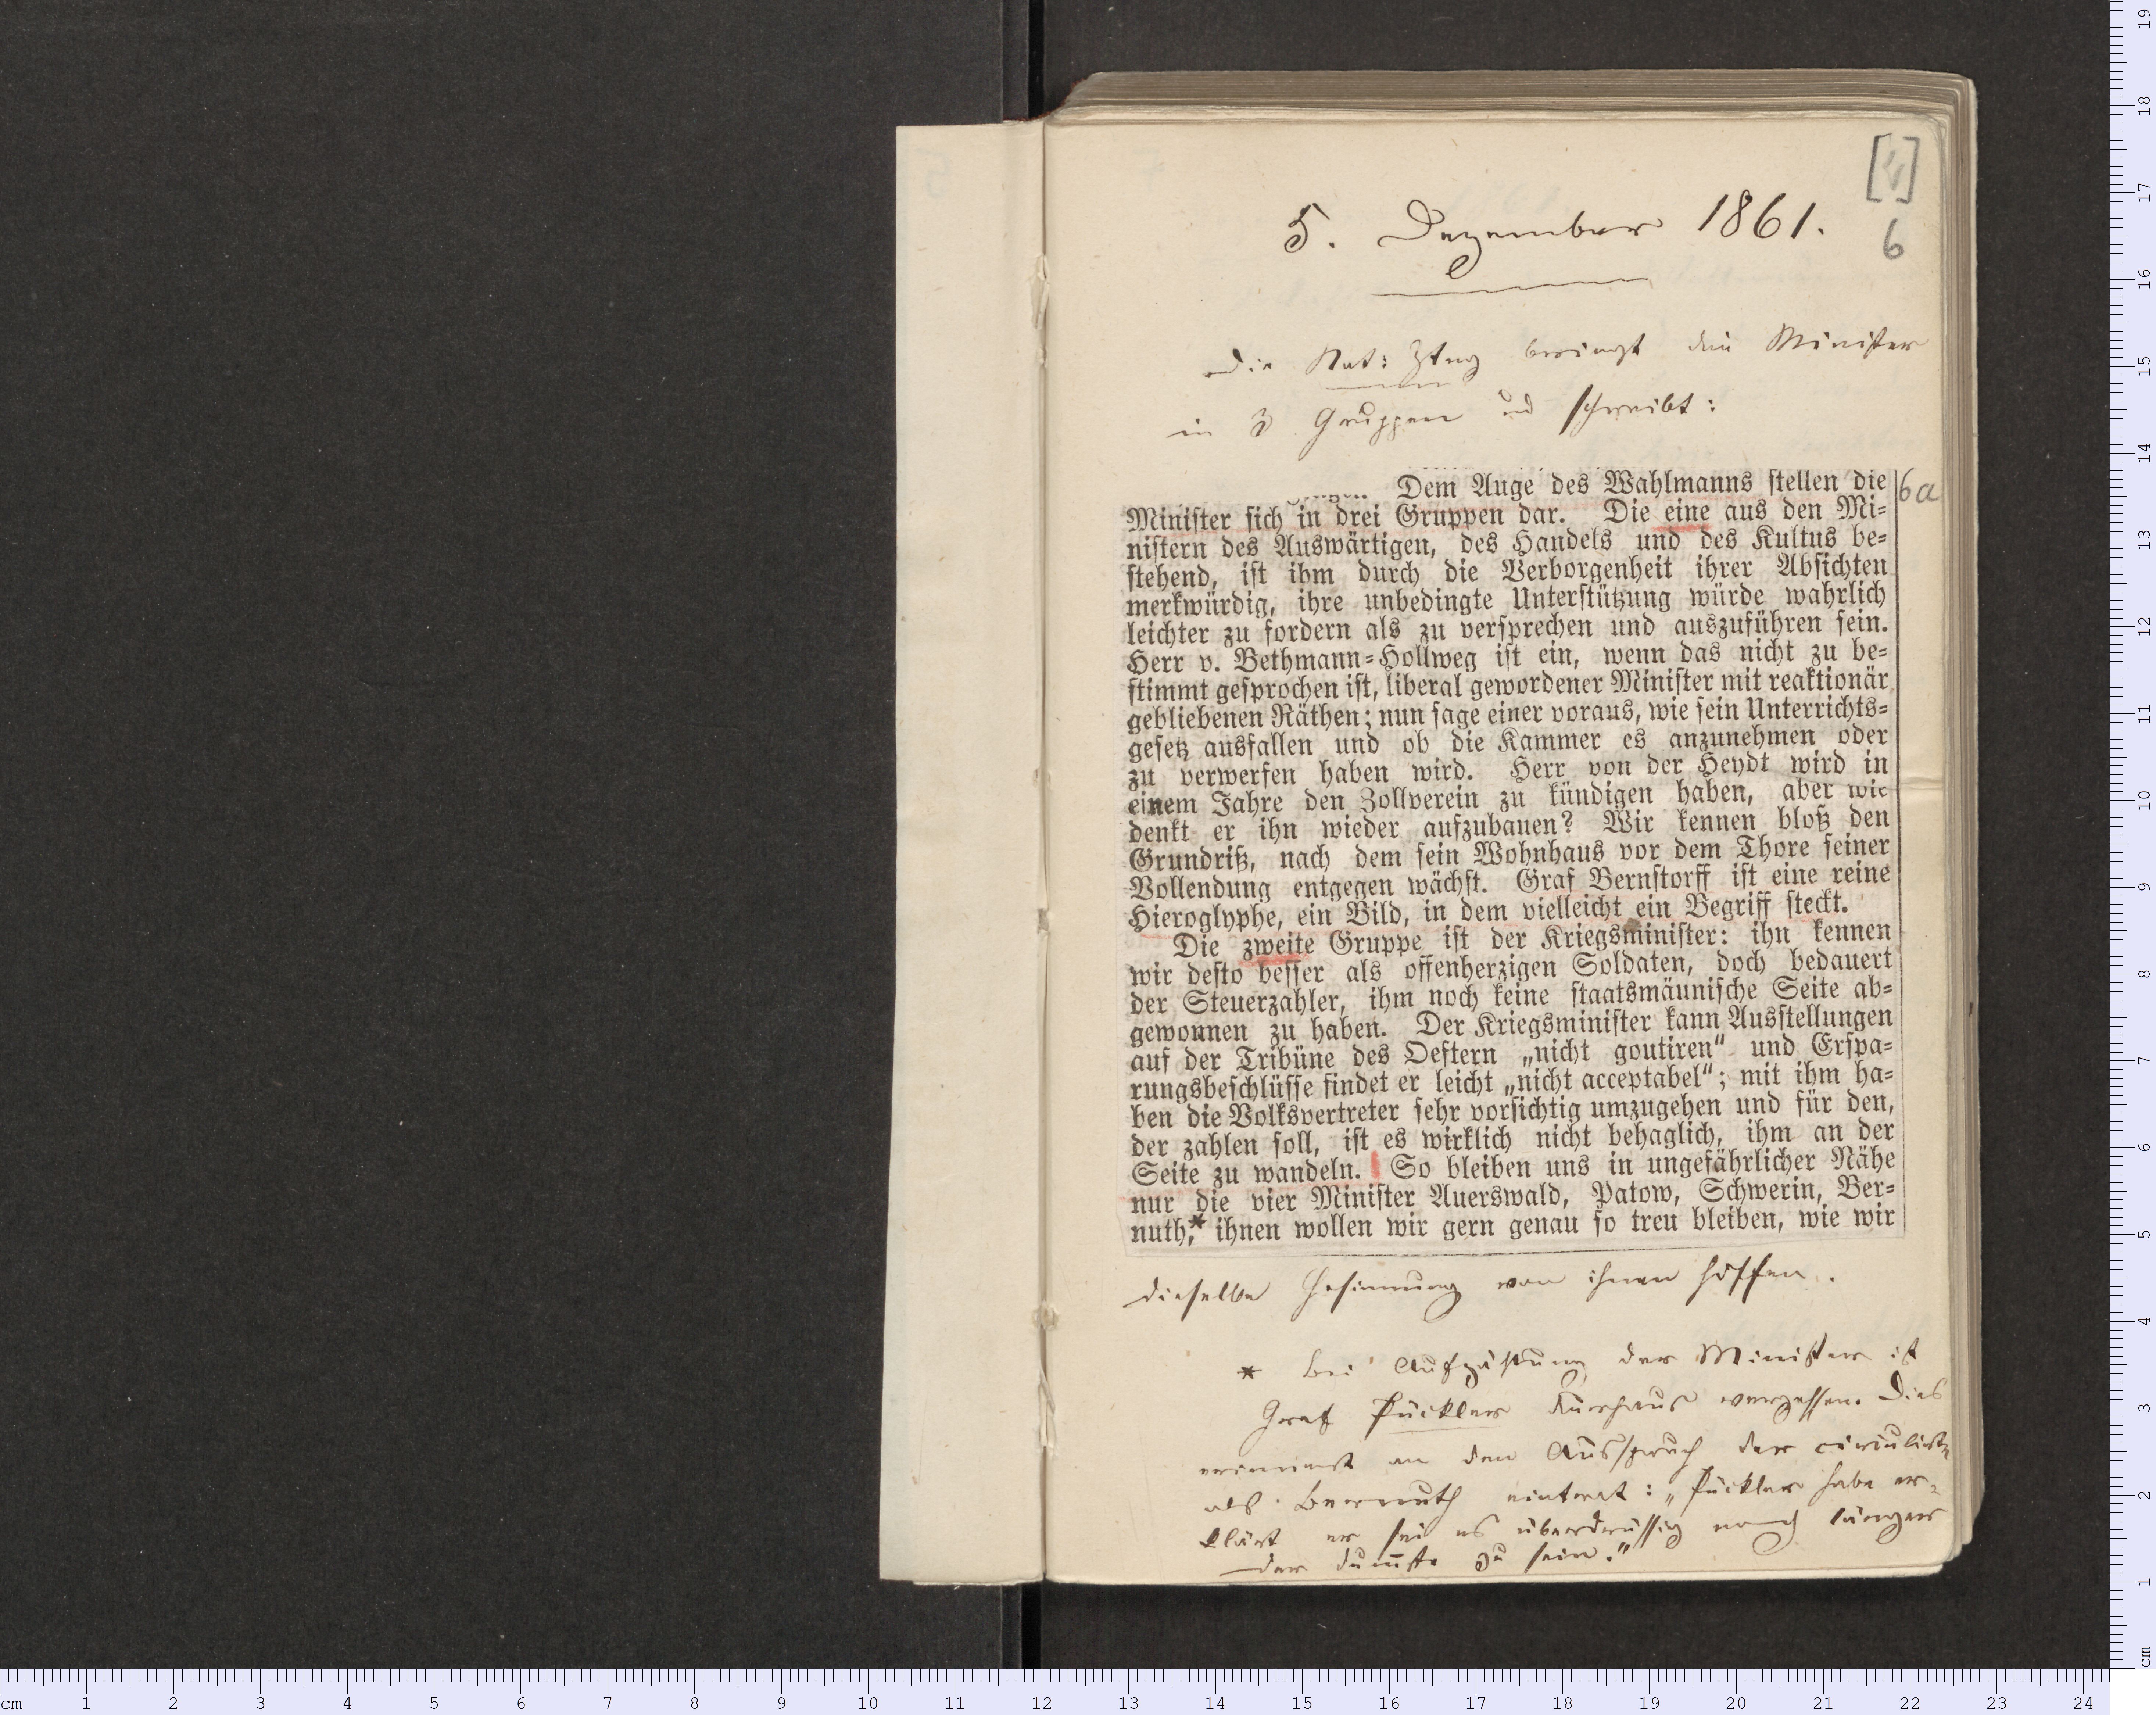 [4]
6
5. Dezember 1861.
Die Nat: Ztng bringt die Minister
in 3 Gruppen und schreibt:
Dem Auge des Wahlmanns stellen die
6a
Minister sich in drei Gruppen dar. Die eine aus den Mi-
nistern des Auswärtigen, des Handels und des Kultus be-
stehend, ist ihm durch die Verborgenheit ihrer Absichten
merkwürdig, ihre unbedingte Unterstützung würde wahrlich
leichter zu fordern als zu versprechen und auszuführen sein.
Herr v. Bethmann-Hollweg ist ein, wenn das nicht zu be-
stimmt gesprochen ist, liberal gewordener Minister mit reaktionär
gebliebenen Räthen; nun sage einer voraus, wie sein Unterrichts-
gesetz ausfallen und ob die Kammer es anzunehmen oder
zu verwerfen haben wird. Herr von der Heydt wird in
einem Jahre den Zollverein zu kündigen haben, aber wie
denkt er ihn wieder aufzubauen? Wir kennen bloß den
Grundriß, nach dem sein Wohnhaus vor dem Thore seiner
Vollendung entgegen wächst. Graf Bernstorff ist eine reine
Hieroglyphe, ein Bild, in dem vielleicht ein Begriff steckt.
Die zweite Gruppe ist der Kriegsminister: ihn kennen
wir desto besser als offenherzigen Soldaten, doch bedauert
der Steuerzahler, ihm noch keine staatsmäunische Seite ab-
gewonnen zu haben. Der Kriegsminister kann Ausstellungen
auf der Tribüne des Oeftern „nicht goutiren“ und Erspa-
rungsbeschlüsse findet er leicht „nicht acceptabel“; mit ihm ha-
ben die Volksvertreter sehr vorsichtig umzugehen und für den,
der zahlen soll, ist es wirklich nicht behaglich, ihm an der
Seite zu wandeln. So bleiben uns in ungefährlicher Nähe
nur die vier Minister Auerswald, Patow, Schwerin, Ber-
nuth,* ihnen wollen wir gern genau so treu bleiben, wie wir
dieselbe Gesinnung von ihnen hoffen.
* Bei Aufzählung der Minister ist
Graf Pückler durchaus vergessen. Dies
erinnert an den Ausspruch der
als Bernuth eintrat: „Pückler habe er-
klärt er sei es überdrüssig noch länger
der dümste zu sein.“